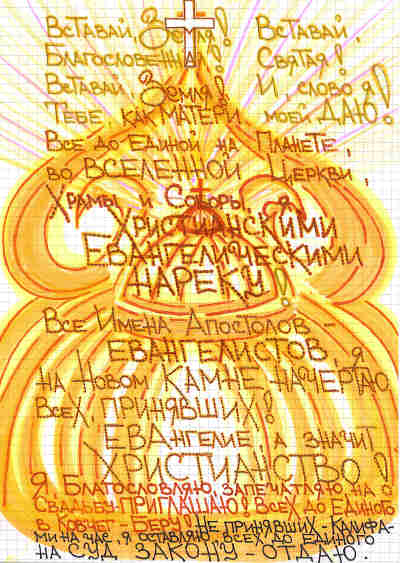 Вставай, Земля! Вставай,
Благословенная! Святая!
Вставай, Земля! И, слово я
Тебе, как матери моей ДАЮ!
Все до единой на Планете,
во Вселенной Церкви,
Храмы и Соборы, я
Христианскими
Евангелическими
нареку!
Все Имена Апостолов -
Евангелистов, я
на Новом Камне начертаю.
Всех, принявших!
Евангелие а значит
Христианство!
Я Благословляю, запечатляю, на
Свадьбу - приглашаю! Всех до Единого
в Ковчег - Беру! Не принявших - Калифа-
ми на час, я оставляю. Всех до Единого
на Суд Закону - отдаю.